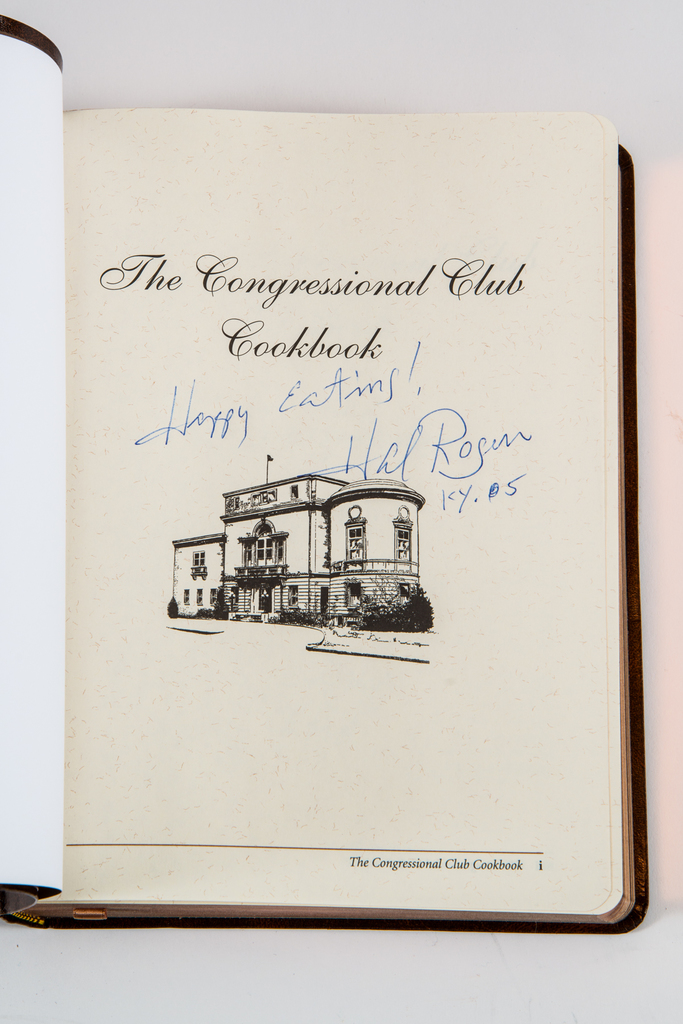 The Congressional Club
Cookbook
Happy Eating!
Hal Rogers
KY. 05
The Congressional Club Cookbook i